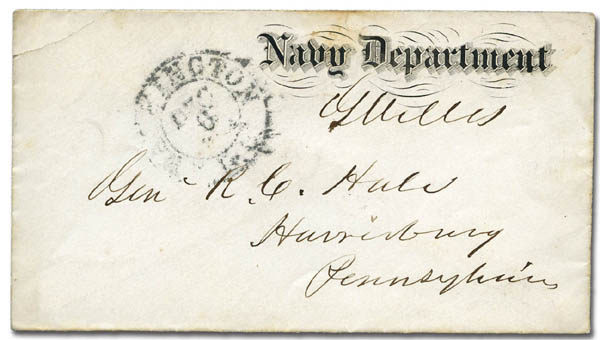 Navy Department
GWelles
INGTON
DEC
8
Genl R. C. Hale
Harrisburg
Pennsylvania